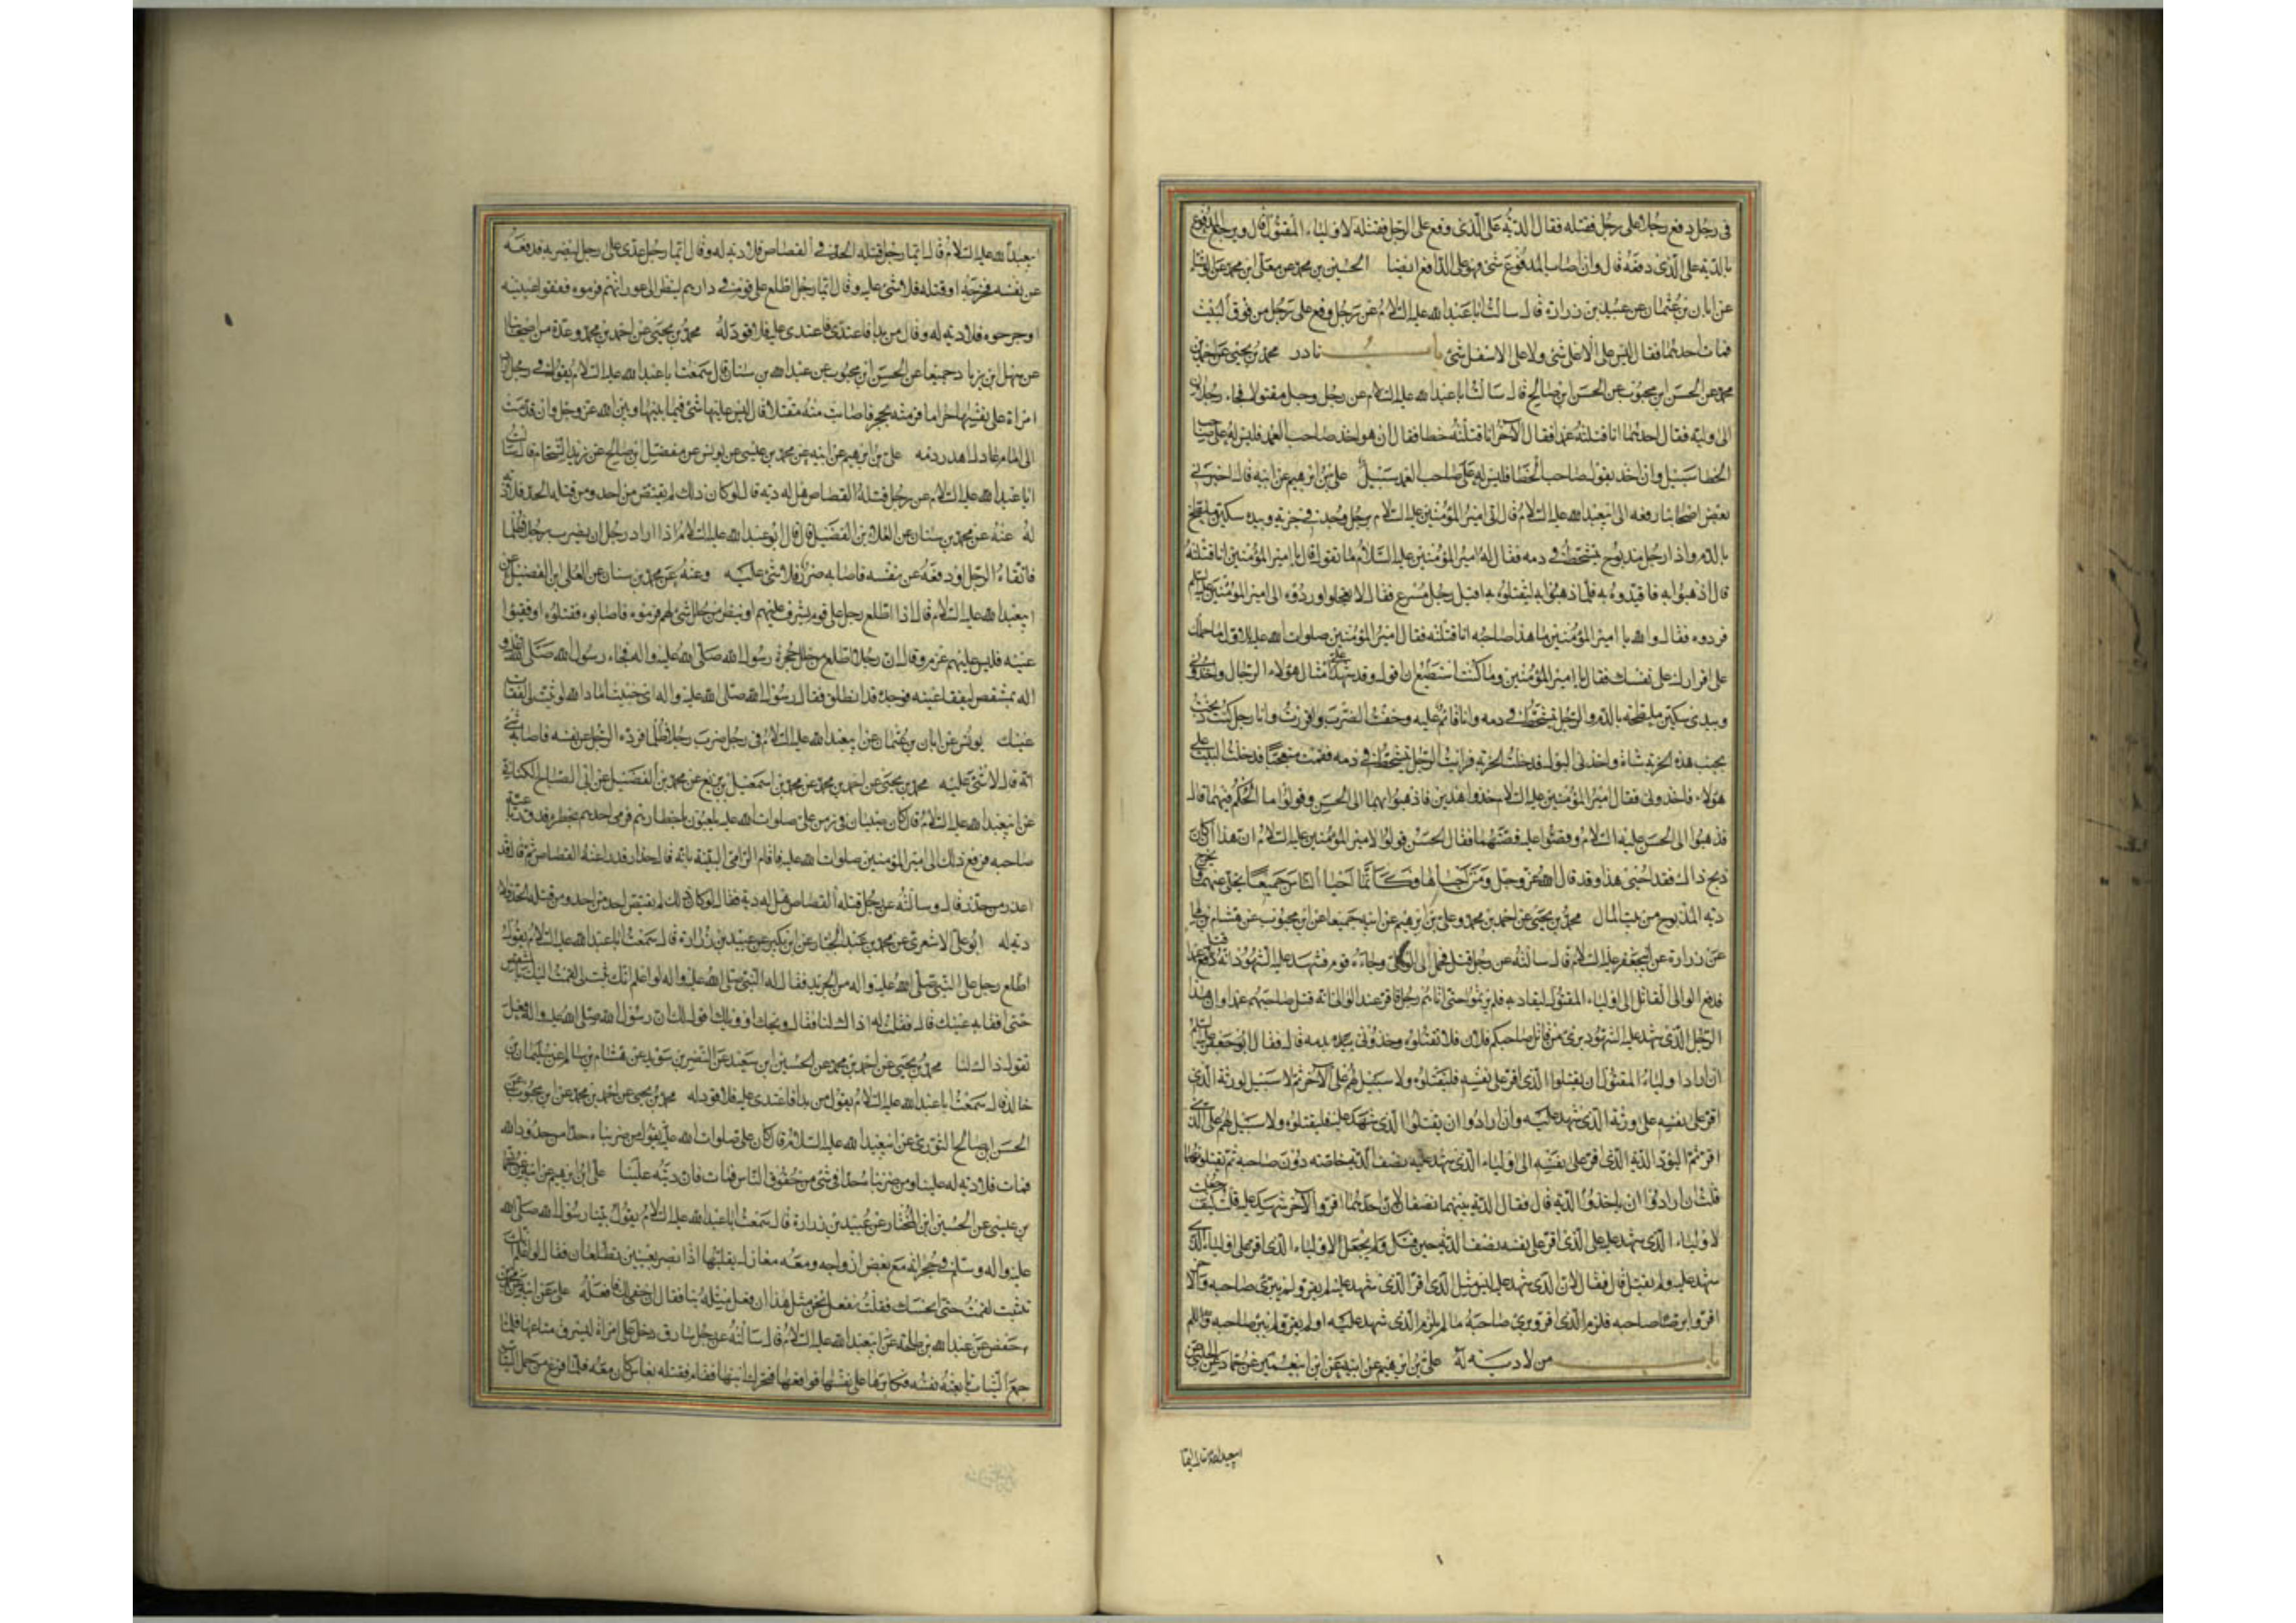 في رجل دفع رجلا على رجل فقتله فقال الدية على الذي وقع على الرجل فقتله لاولياء المقتول قال ويرجع المدفوع
بالدية على الذي دفعه قال وان اصاب المدفوع شئ فهو على الدافع ايضا الحسين بن محمد عن معلى ابن محمد عن الوشاء
عن ابان بن عثمان عن عبيد بن زرارة قال سالت ابا عبد الله عليه السلام عن رجل وقع على رجل من فوق البيت
فمات احدهما فقال ليس على الاعلى شئ ولا على الاسفل شئ باب نادر محمد بن يحيى عن احمد بن
محمد عن الحسن ابن محبوب عن الحسن ابن صالح قال سالت ابا عبد الله عليه السلام عن رجل وجد مقتولا فجاء رجلان
الى وليه فقال احدهما انا قتلته عمدا فقال الآخر انا قتلته خطا فقال ان هو اخذ صاحب العمد فليس له على صاحب
الخطا سبيل وان اخذ بقول صاحب الخطا فليس له على صاحب العمد سبيل علي بن ابرهيم عن ابيه قال اخبرني
بعض اصحابنا رفعه الى ابيعبد الله عليه السلام قال اتى امير المؤمنين عليه السلام برجل وجد في خربة وبيده سكين ملطخ
بالدم واذا رجل مذبوح يتشحط في دمه فقال له امير المؤمنين عليه السلام ما تقول قال يا امير المؤمنين انا قتلته
قال اذهبوا به فاقيدوه به فلما ذهبوا به ليقتلوه به اقبل رجل مسرع فقال لا تعجلوا وردوه الى امير المؤمنين عليه السلم
فردوه فقال والله يا امير المؤمنين ما هذا صاحبه انا قتلته فقال امير المؤمنين صلوات الله عليه للاول ما حملك
على اقرارك على نفسك فقال يا امير المؤمنين وما كنت استطيع ان اقول وقد شهد علي امثال هؤلاء الرجال واخذوني
وبيدي سكين ملطخة بالدم والرجل يتشحط في دمه وانا قائم عليه وخفت الضرب واقررت وانا رجل كنت ذبحت
بجنب هذه الخربة شاة واخذني البول فدخلت الخربة فرايت الرجل يتشحط في دمه فقمت متعجبا فدخل علي
هؤلاء فاخذوني فقال امير المؤمنين عليه السلام خذوا هذين فاذهبوا بهما الى الحسن وقولوا ما الحكم فيهما قال
فذهبوا الى الحسن عليه السلام وقصوا عليه قصتهما فقال الحسن قولوا لامير المؤمنين عليه السلام ان هذا ان كان
ذبح ذاك فقد احيى هذا وقد قال الله عز وجل ومن احياها فكانما احيا الناس جميعا يخلى عنهما ويخرج
دية المذبوح من بيت المال محمد بن يحيى عن احمد بن محمد وعلي بن ابرهيم عن ابيه جميعا عن ابن محبوب عن هشام بن سالم
عن زرارة عن ابيجعفر عليه السلام قال سالته عن رجل قتل فحمل الى الوالي وجاءه قوم فشهد عليه الشهود انه قتل عمدا
فدفع الوالي القاتل الى اولياء المقتول ليقاد به فلم يرتموا حتى اتاهم رجل فاقر عند الوالي انه قتل صاحبهم عمدا وان هذا
الرجل الذي شهد عليه الشهود برئ من قتل صاحبكم فلان فلا تقتلوه وخذوني بدمه قال فقال ابو جعفر عليه السلم
ان اراد اولياء المقتول ان يقتلوا الذي اقر على نفسه فليقتلوه ولا سبيل لهم على الآخر ثم لا سبيل لورثة الذي
اقر على نفسه على ورثة الذي شهد عليه وان ارادوا ان يقتلوا الذي شهد عليه فليقتلوه ولا سبيل لهم على الذي
اقر ثم ليود الدية الذي اقر على نفسه الى اولياء الذي شهد عليه نصف الدية خاصة دون صاحبه ثم يقتلونهما
قلت ان ارادوا ان ياخذوا الدية قال فقال الدية بينهما نصفان لان احدهما اقر والآخر شهد عليه قلت كيف جعلت
لاولياء الذي شهد عليه على الذي اقر على نفسه نصف الدية حين قتل ولم يجعل لاولياء الذي اقر على اولياء الذي
شهد عليه ولم يقتل قال فقال لان الذي شهد عليه ليس مثل الذي اقر الذي شهد عليه لم يقر ولم يبرئ صاحبه والآخر
اقر وابرئ صاحبه فلزم الذي اقر وبرئ صاحبه ما لم يلزم الذي شهد عليه ولم يقر ولم يبرئ صاحبه
باب من لا دية له علي بن ابرهيم عن ابيه عن ابن ابيعمير عن حماد عن الحلبي عن
ابيعبد الله قال ايما
ابيعبد الله عليه السلام قال ايما رجل قتله الحد في القصاص فلا دية له وقال ايما رجل عدى على رجل ليضربه فدفعه
عن نفسه فجرحه او قتله فلا شئ عليه وقال ايما رجل اطلع على قوم في دارهم لينظر الى عوراتهم فرموه ففقوا عينيه
او جرحوه فلا دية له وقال من بدا فاعتدى فاعتدى عليه فلا قود له محمد بن يحيى عن احمد بن محمد وعدة من اصحابنا
عن سهل ابن زياد جميعا عن الحسن ابن محبوب عن عبد الله بن سنان قال سمعت ابا عبد الله عليه السلام يقول في رجل اراد
امراة على نفسها حراما فرمته بحجر فاصابت منه مقتلا قال ليس عليها شئ فيما بينها وبين الله عز وجل وان قدمت
الى امام عادل اهدر دمه علي بن ابرهيم عن ابيه عن محمد بن عيسى عن يونس عن مفضل ابن صالح عن زيد الشحام قال سالت
ابا عبد الله عليه السلام عن رجل قتله القصاص هل له دية قال لو كان ذلك لم يقتص من احد ومن قتله الحد فلا دية
له عنه عن محمد بن سنان عن العلاء بن الفضيل قال قال ابو عبد الله عليه السلام اذا اراد رجل ان يضرب رجلا ظلما
فاتقاه الرجل او دفعه عن نفسه فاصابه ضرر فلا شئ عليه وعنه عن محمد بن سنان عن العلى ابن الفضيل عن
ابيعبد الله عليه السلام قال اذا اطلع رجل على قوم يشرف عليهم او ينظر من خلل شئ لهم فرموه فاصابوه فقتلوه او فقئوا
عينه فليس عليهم غرم وقال ان رجلا اطلع من خلل حجرة رسول الله صلى الله عليه واله فجاء رسول الله صلى الله عليه و
اله بمشقص ليفقا عينه فوجده قد انطلق فقال رسول الله صلى الله عليه واله اي خبيث اما والله لو ثبت لي لفقات
عينك يونس عن ابان بن عثمان عن ابيعبد الله عليه السلام في رجل ضرب رجلا ظلما فرده الرجل عن نفسه فاصابه شئ
انه قال لا شئ عليه محمد بن يحيى عن احمد بن محمد عن محمد بن اسمعيل بن بزيع عن محمد بن الفضيل عن ابي الصباح الكناني
عن ابيعبد الله عليه السلام قال كان صبيان في زمن علي صلوات الله عليه يلعبون باخطار لهم فرمى احدهم بخطره فدق رباعية
صاحبه فرفع ذلك الى امير المؤمنين صلوات الله عليه فاقام الرامي البينة بانه قال حذار فدرا عنه القصاص ثم قال قد
اعذر من حذر قال وسالته عن رجل قتله القصاص هل له دية فقال لو كان ذلك لم يقتص احد من احد ومن قتله الحد فلا
دية له ابو علي الاشعري عن محمد بن عبد الجبار عن ابن بكير عن عبيد بن زرارة قال سمعت ابا عبد الله عليه السلام يقول
اطلع رجل على النبي صلى الله عليه واله من الجريد فقال له النبي صلى الله عليه واله لو اعلم انك تثبت لي لقمت اليك بالمشقص
حتى افقا به عينك قال فقلت له اذاك لنا فقال ويحك او ويلك اقول لك ان رسول الله صلى الله عليه واله فعل
تقول ذاك لنا محمد بن يحيى عن احمد بن محمد عن الحسين ابن سعيد عن النضر بن سويد عن هشام بن سالم عن سليمان بن
خالد قال سمعت ابا عبد الله عليه السلام يقول من بدا فاعتدى عليه فلا قود له محمد بن يحيى عن احمد بن محمد عن ابن محبوب عن
الحسن ابن صالح الثوري عن ابيعبد الله عليه السلام قال كان علي صلوات الله عليه يقول من ضربناه حدا من حدود الله
فمات فلا دية له علينا ومن ضربناه حدا في شئ من حقوق الناس فمات فان ديته علينا علي ابن ابرهيم عن ابيه عن محمد
بن عيسى عن الحسين ابن المختار عن عبيد بن زرارة قال سمعت ابا عبد الله عليه السلام يقول بينا رسول الله صلى الله
عليه واله وسلم في حجراته مع بعض ازواجه ومعه مغازل يقلبها اذا بصر بعينين تطلعان فقال لو اعلم انك
تثبت لقمت حتى انخسك فقلت نفعل نحن مثل هذا ان فعل مثله بنا فقال ان خفي لك فافعله علي عن ابيه عن محمد بن
حفص عن عبد الله بن طلحة عن ابيعبد الله عليه السلام قال سالته عن رجل سارق دخل على امراة ليسرق متاعها فلما
جمع الثياب تابعته نفسه فكابرها على نفسها فواقعها فتحرك ابنها فقام فقتله بفاس كان معه فلما فرغ من حمل الثياب